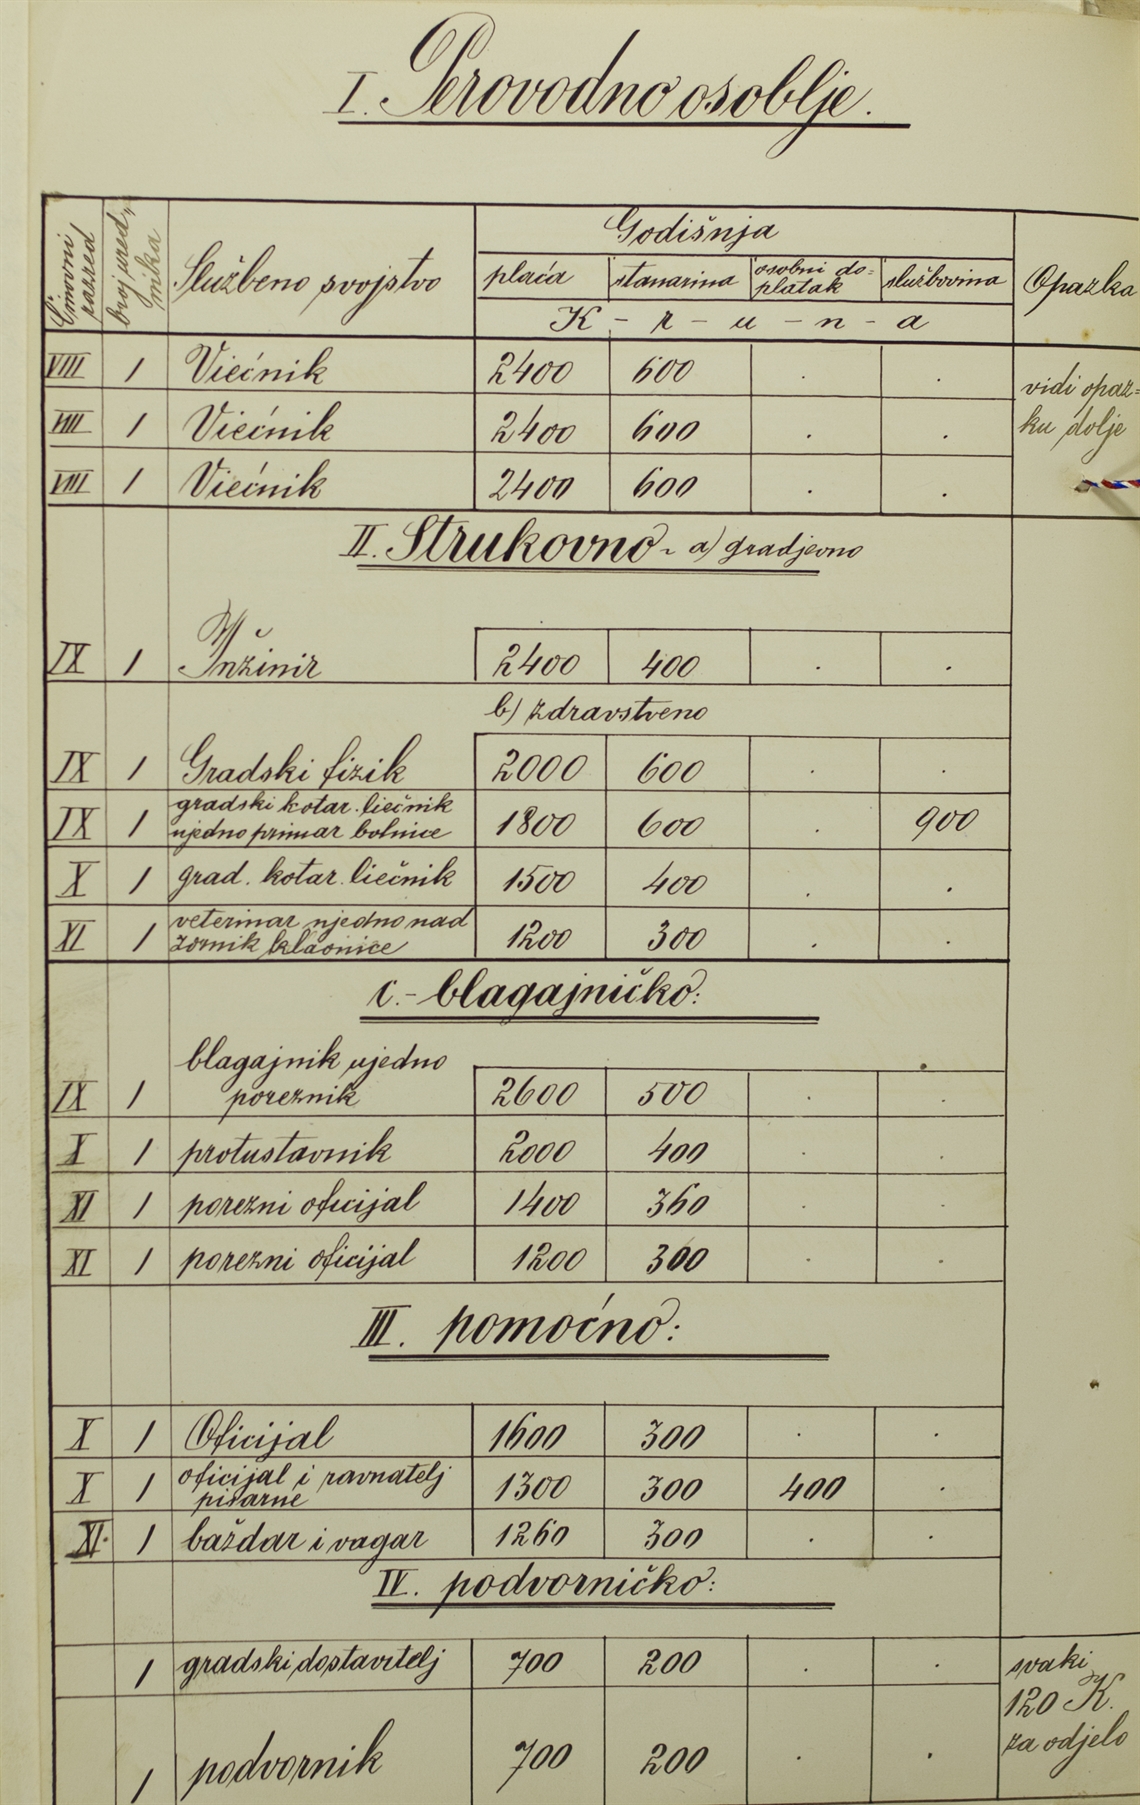 I. Perovodno osoblje.
Činovni razred
broj urednika
Službeno svojstvo
Godišnja
plaća stanarina osobni do=platak službovina
Opazka
K - r - u - n - a
VIII 1 Viećnik 2400 600 . . vidi opaz=
VIII 1 Viećnik 2400 600 . . ku dolje
VIII 1 Viećnik 2400 600 . .
II. Strukovno - a) gradjevno
IX 1 Inžinir 2400 400 . .
b) zdravstveno
IX 1 Gradski fizik 2000 600 . .
gradski kotar. liečnik
IX 1 ujedno primar bolnice 1800 600 . 900
X 1 grad. kotar. liečnik 1500 400 . .
veterinar ujedno nad
XI 1 zornik klaonice 1200 300 . .
c.- blagajničko:
blagajnik ujedno
IX 1 poreznik 2600 500 . .
X 1 protustavnik 2000 400 . .
XI 1 porezni oficijal 1400 360 . .
XI 1 porezni oficijal 1200 300 . .
III. pomoćno:
X 1 Oficijal 1600 300 . .
oficijal i ravnatelj
X 1 pisarne 1300 300 400 .
XI. 1 baždar i vagar 1260 300 . .
IV. podvorničko:
1 gradski dostavitelj 700 200 . . svaki
120 K.
za odjelo
1 podvornik 700 200 . .